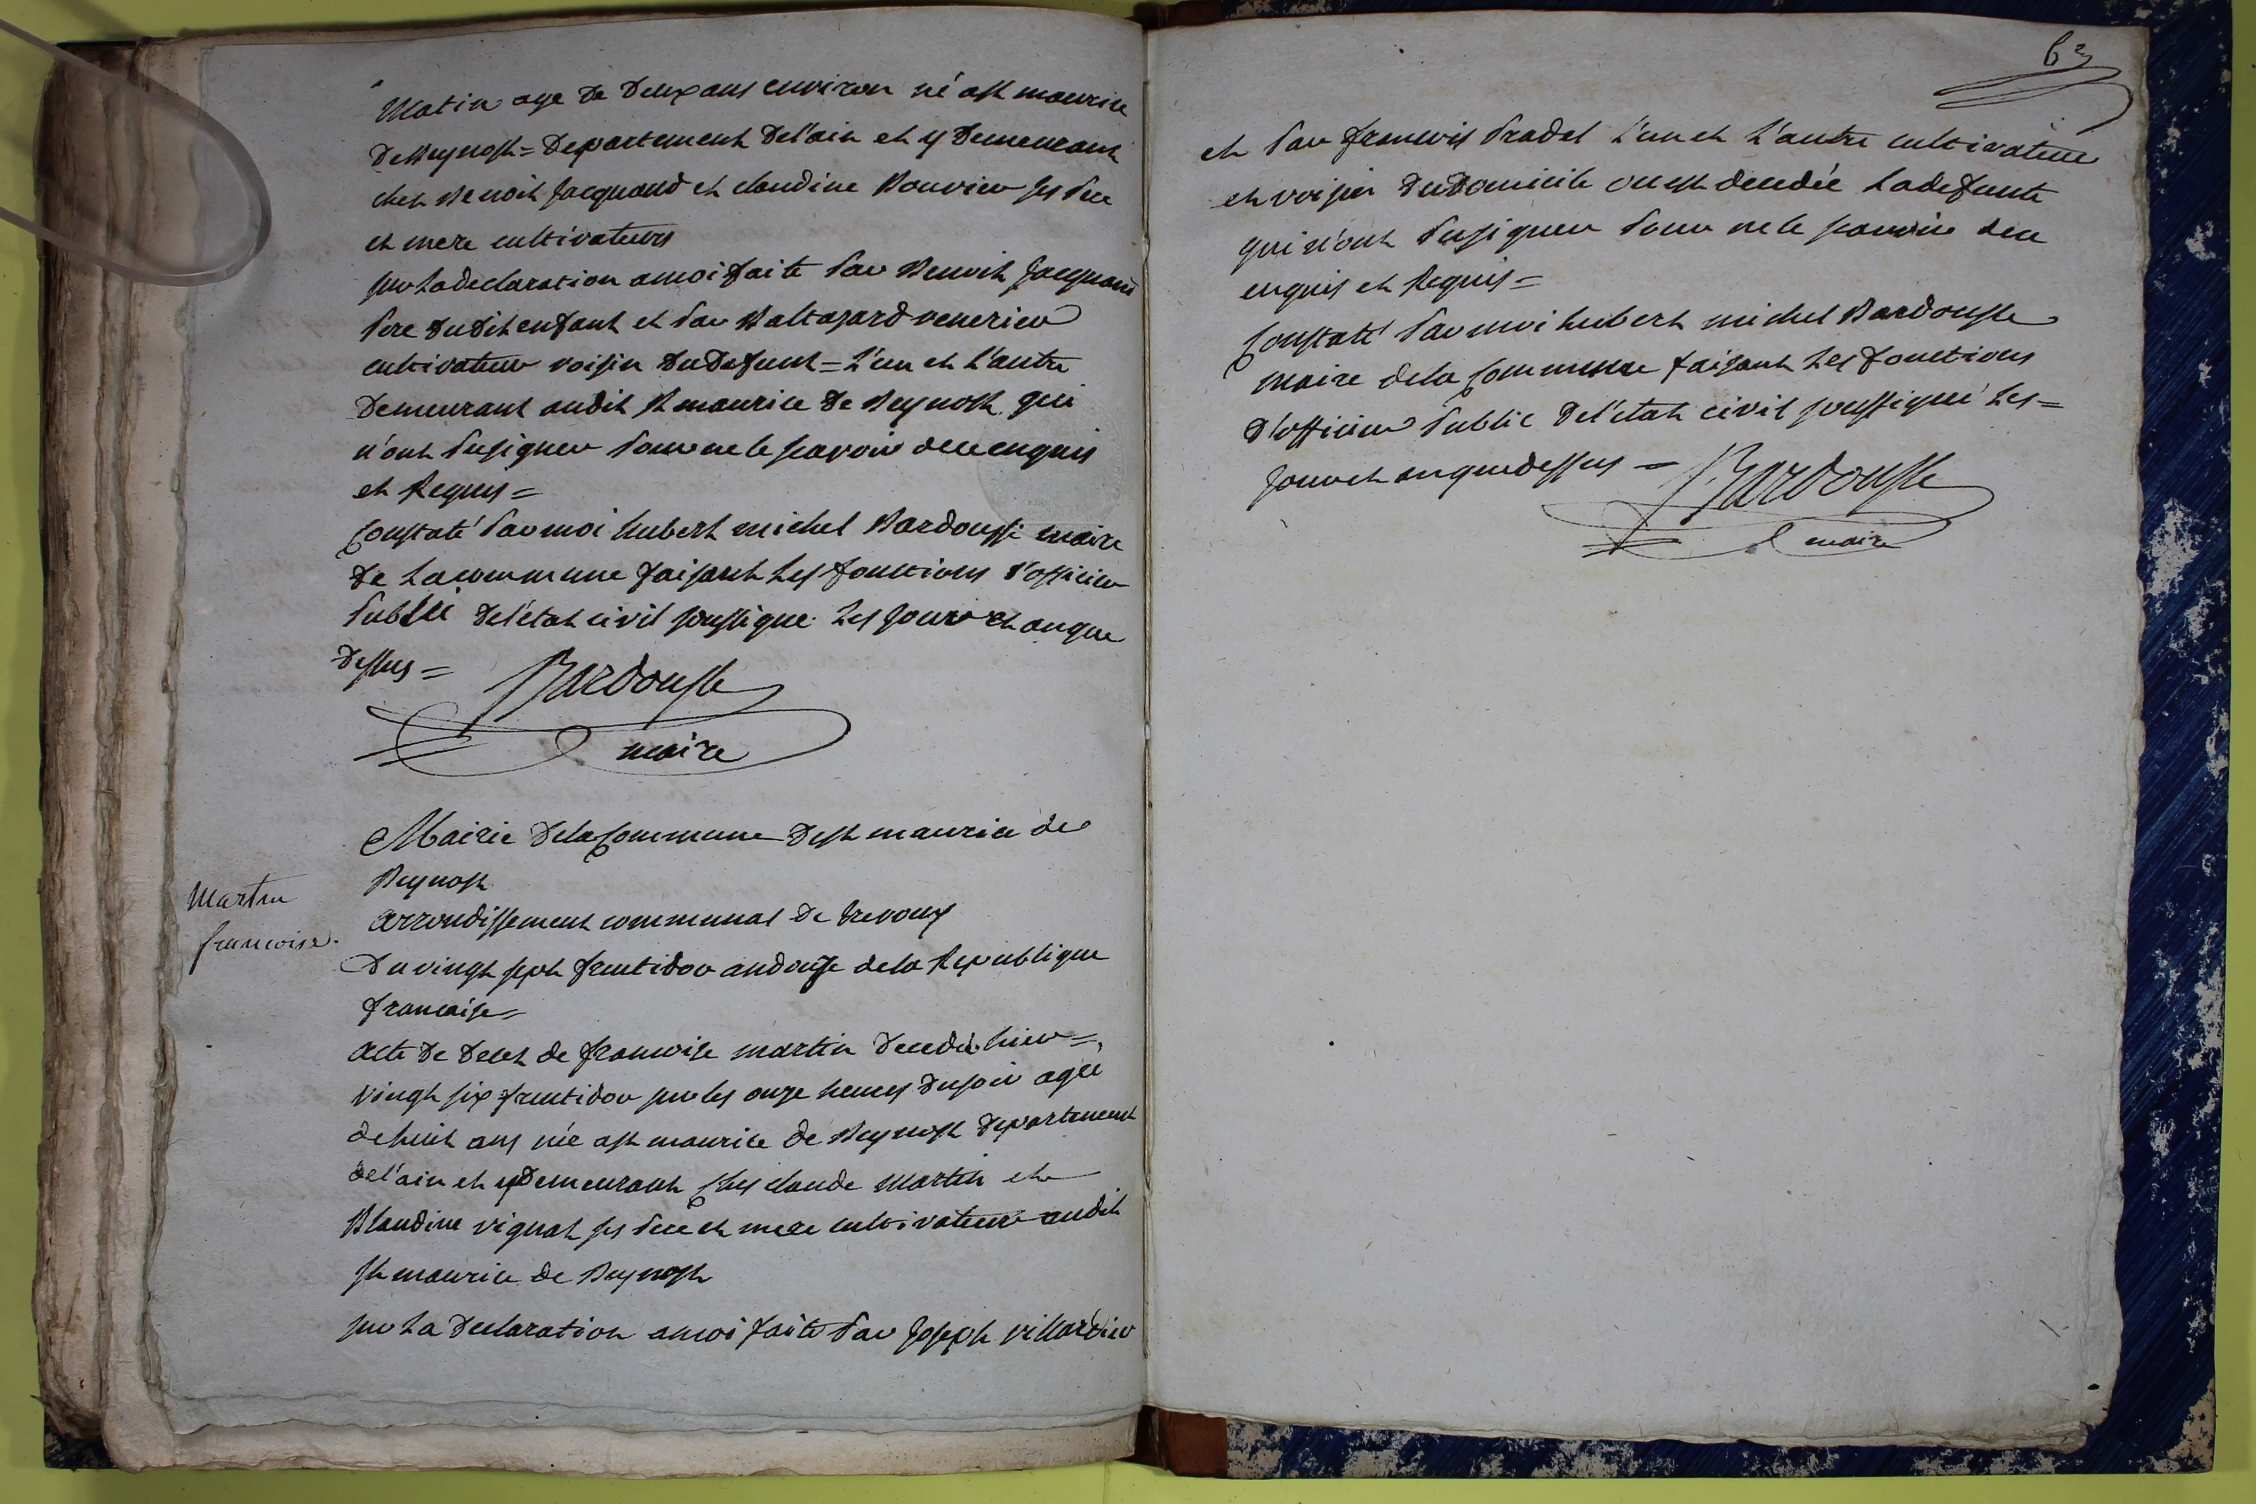 Matin age de deux ans environ né a st maurice
de Beynost = departement de l'ain et y demeurant
chez Benoit jacquand et claudine Bouvier ses pere
et mere cultivateurs
sur la declaration a moi faite par Benoit jacquand
pere du dit enfant et par Baltazard venerier
cultivateur voisin du defunt = l'un et l'autre
demeurant audit st maurice de Beynost qui
n'ont su signer pour ne le savoir de ce enquis
et Requis =
Constaté par moi hubert michel Bardousse maire
de la commune faisant les fonctions d'officier
public de l'état civil soussigné les jour et an que
dessus = Bardousse
maire
Mairie de la Commune de st maurice de
Beynost
arrondissement communal de trevoux
Martin
francoise.
Du vingt sept fructidor an douze de la Republique
francaise =
acte de deces de francoise martin decedée hier =
vingt six fructidor sur les onze heures du soir agée
de huit ans née a st maurice de Beynost departement
de l'ain et y demeurant Chez claude martin et
Blandine vignat ses pere et mere cultivateurs audit
st maurice de Beynost
sur la declaration a moi faite par joseph villardier
63
et par francois pradel l'un et l'autre cultivateur
et voisin du domicile ou est decedée la defunte
qui n'ont su signer pour ne le savoir de ce
enquis et Requis =
Constaté par moi hubert michel Bardousse
maire de la Commune faisant les fonctions
d'officier public de l'état civil soussigné les =
jour et an que dessus = Bardousse
maire